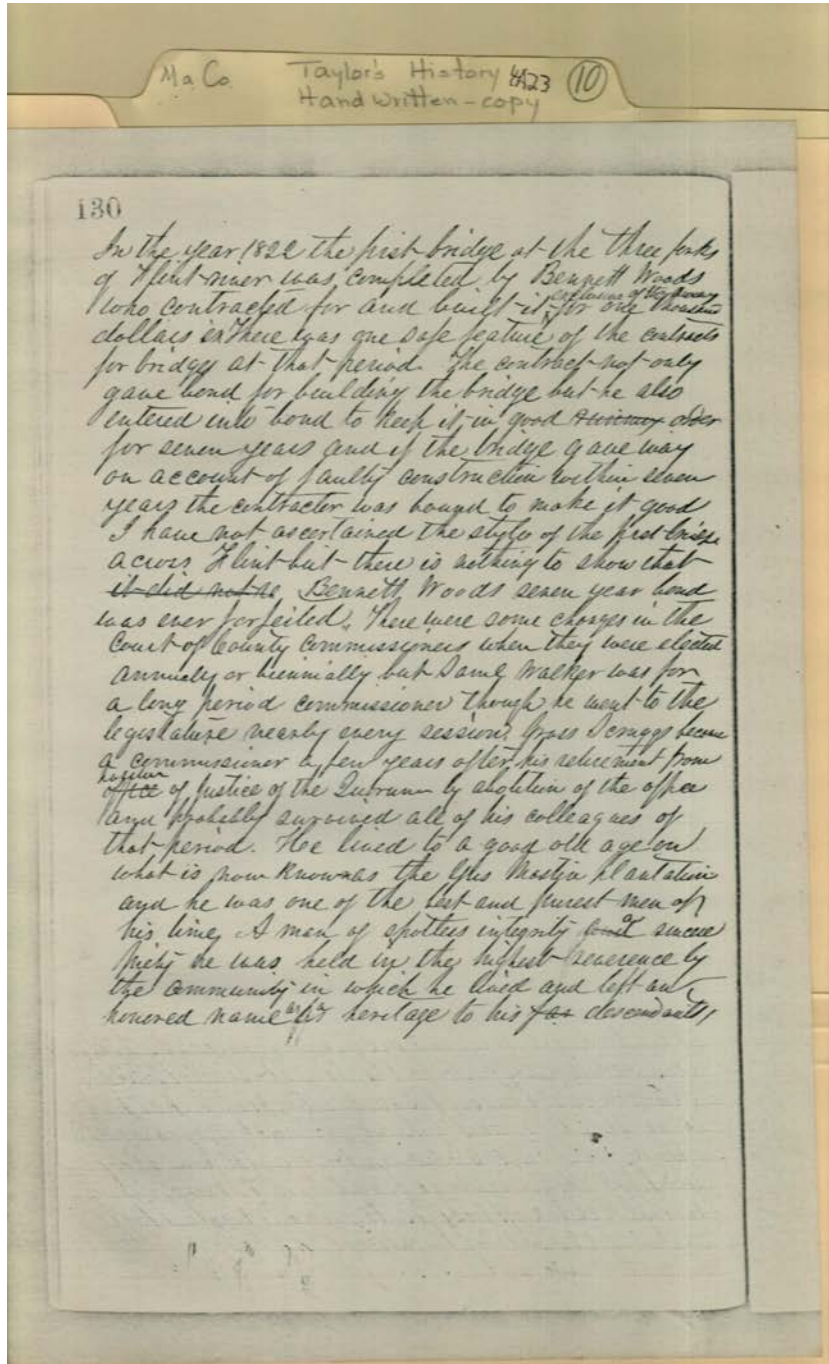 Ma. Co. Taylor's History 4A23 10
Hand written - copy
130
In the year 1822 the first bridge at the three forks
of Flint river was completed by Bennett Woods
who contracted for and built it exclusive of the for one thousand
dollars There was one safe feature of the contracts
for bridges at that period. The contract not only
gave bond for building the bridge but he also
entered into bond to keep it in good running order
for seven years and if the bridge gave way
on account of faulty construction within seven
years the contractor was bound to make it good
I have not ascertained the style of the first bridge
across Flint but there is nothing to show that
it did not Bennett Woods seven year bond
was ever forfeited. There were some changes in the
Court of County Commissioners when they were elected
annually or biennially but Saml Walker was for
a long period commissioner though he went to the
legislature nearly every session. Gross Scruggs became
a commissioner a few years after his retirement from
position office of Justice of the Quorum by abolition of the office
and probably survived all of his colleagues of
that period. He lived to a good old age on
what is now known as the Gus plantation
and he was one of the best and purest men of
his time, A man of spotless integrity and of sincere
piety he was held in the highest reverence by
the community in which he lived and left an
honored name as a heritage to his far descendants,